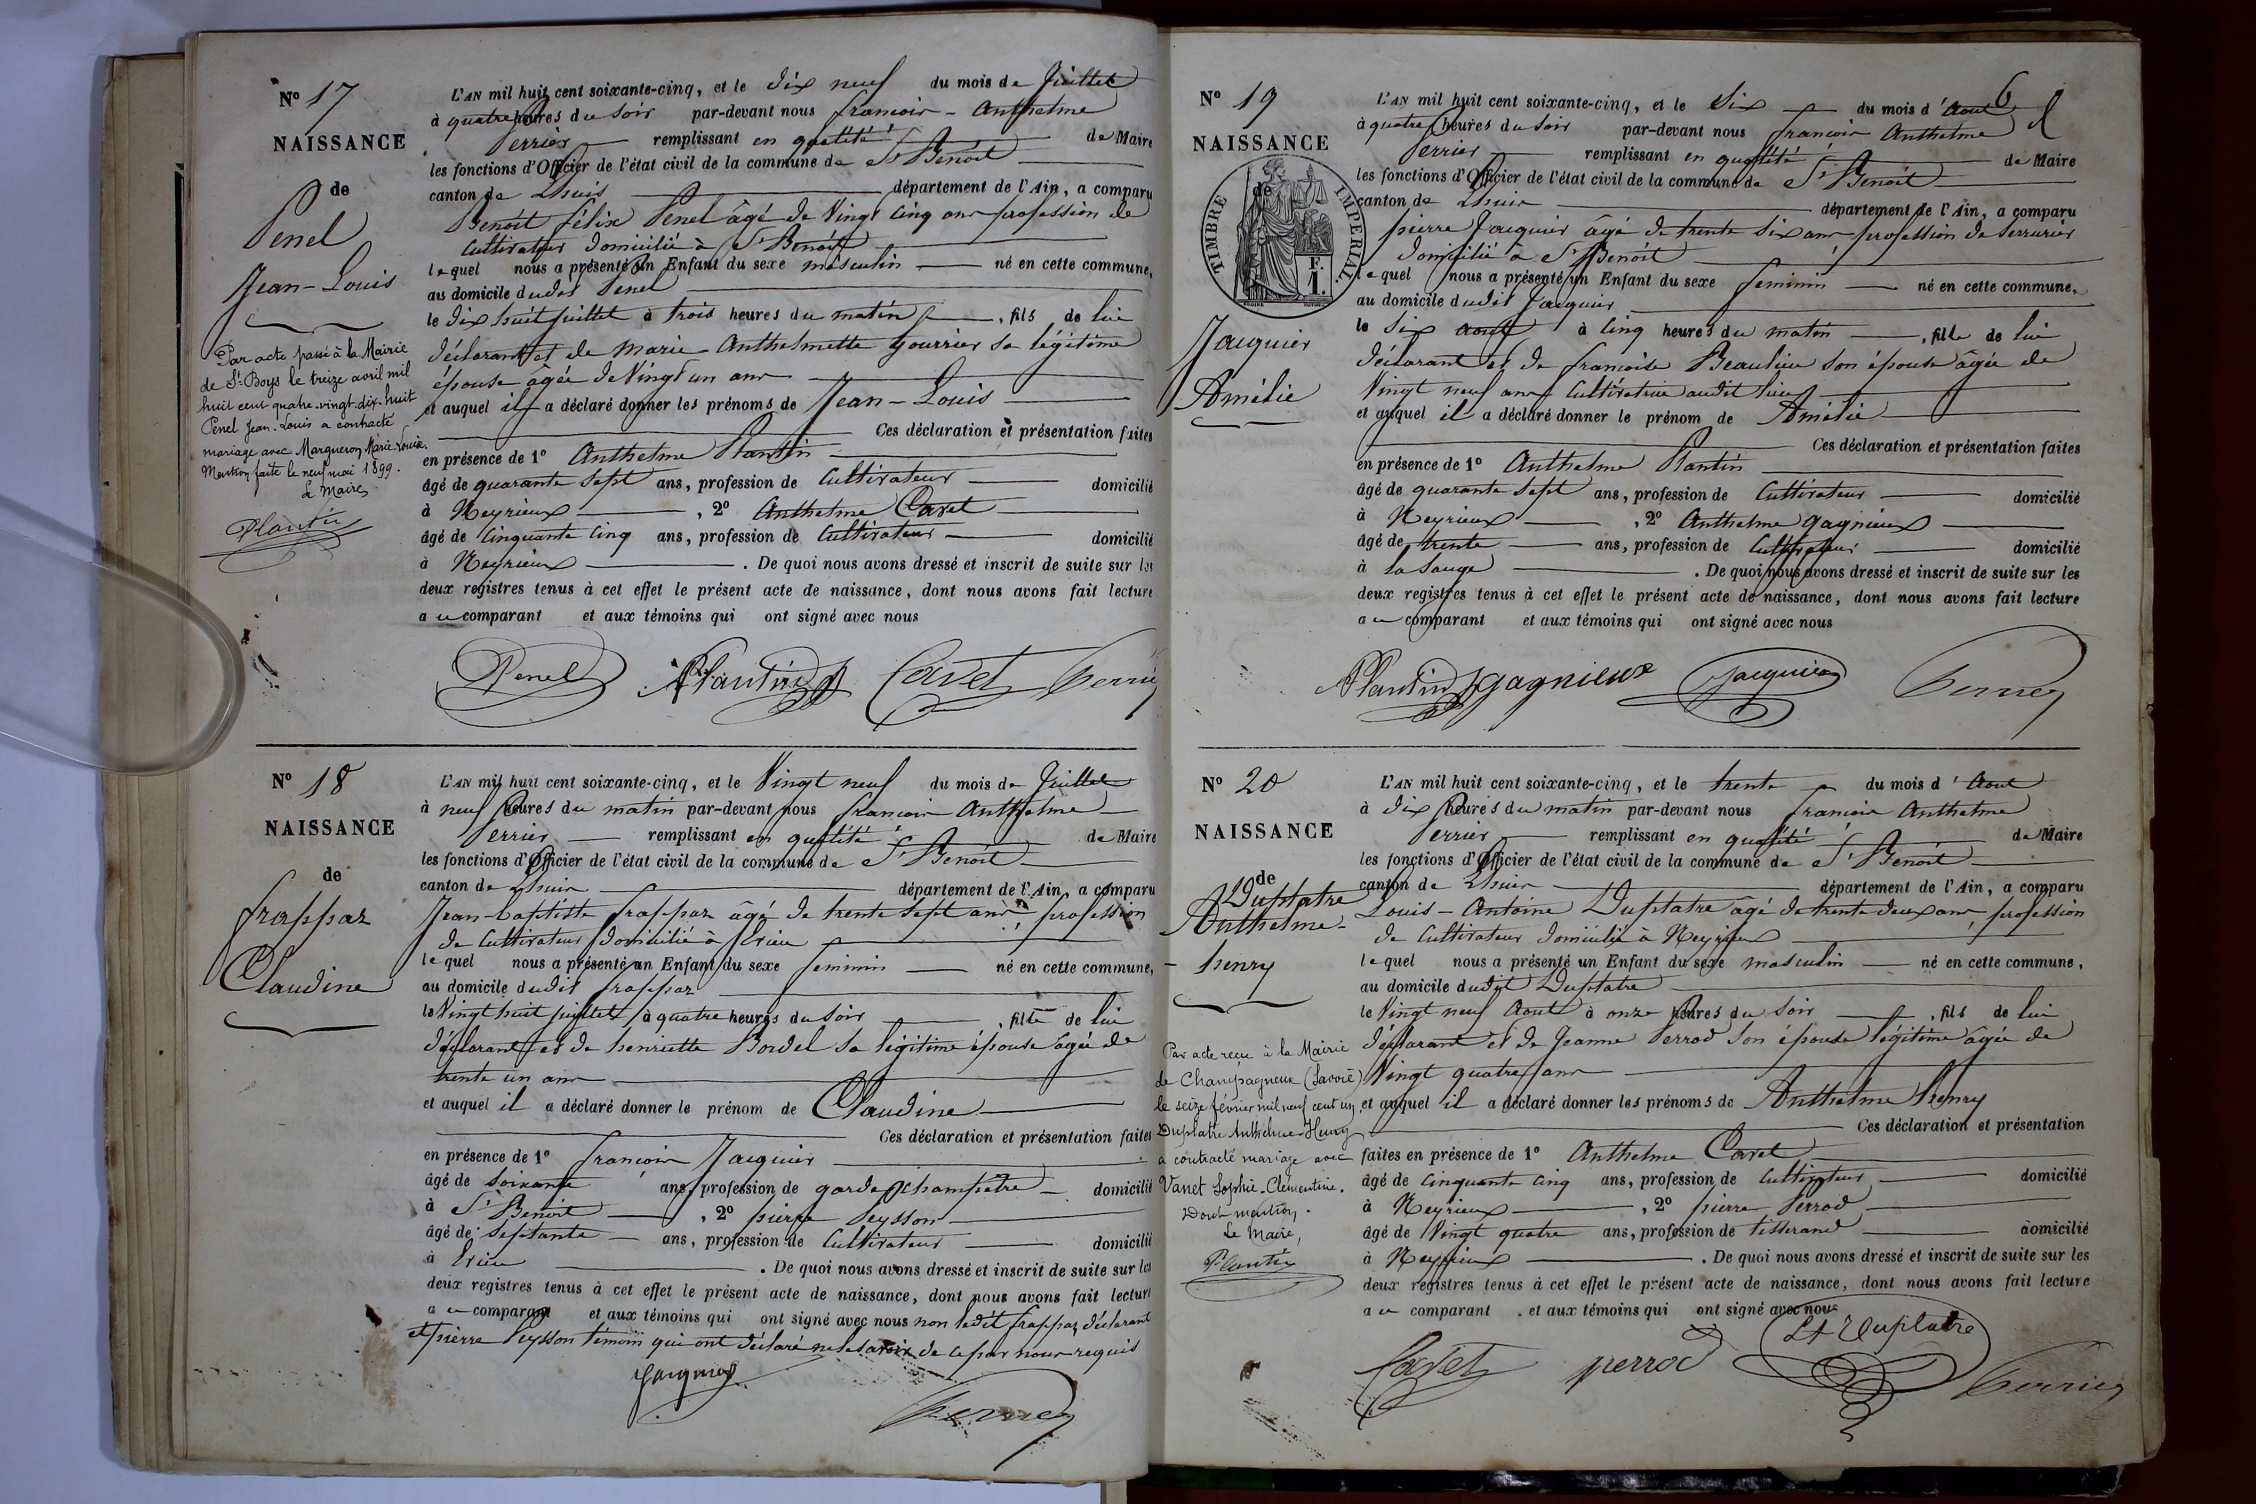 N° 17
NAISSANCE
de
Penel
Jean-Louis
Par acte passé à la Mairie
de St-Boys le treize avril mil
huit cent quatre-vingt-dix-huit
Penel Jean-Louis a contracté
mariage avec Margueron Marie-Louise.
Mention faite le neuf mai 1899.
Le Maire,
Plantin
L'AN mil huit cent soixante-cinq, et le dix neuf du mois de Juillet
à quatre heures du soir par-devant nous françois-Anthelme
Perrier remplissant en qualité de Maire
les fonctions d'Officier de l'état civil de la commune de St Benoît
canton de Lhuis département de l'Ain, a comparu
Benoît félix Penel âgé de Vingt Cinq ans profession de
Cultivateur domicilié à St Benoît
lequel nous a présenté un Enfant du sexe masculin né en cette commune,
au domicile dudit Penel
le dix huit juillet à trois heures du matin, fils de lui
déclarant et de Marie Anthelmette Gourrier sa légitime
épouse âgée de Vingt un ans
et auquel il a déclaré donner les prénoms de Jean-Louis
Ces déclaration et présentation faites
en présence de 1° Anthelme Plantin
âgé de quarante sept ans, profession de Cultivateur domicilié
à Neyrieux, 2° Anthelme Cavet
âgé de Cinquante Cinq ans, profession de Cultivateur domicilié
à Neyrieux. De quoi nous avons dressé et inscrit de suite sur les
deux registres tenus à cet effet le présent acte de naissance, dont nous avons fait lecture
au comparant et aux témoins qui ont signé avec nous
Penel Plantin Cavet Perrier
N° 18
NAISSANCE
de
frappaz
Claudine
L'AN mil huit cent soixante-cinq, et le Vingt neuf du mois de Juillet
à neuf heures du matin par-devant nous françois Anthelme
Perrier remplissant en qualité de Maire
les fonctions d'Officier de l'état civil de la commune de St Benoît
canton de Lhuis département de l'Ain, a comparu
Jean-baptiste frappaz âgé de trente sept ans profession
de Cultivateur domicilié à Evieu
lequel nous a présenté un Enfant du sexe feminin né en cette commune,
au domicile dudit frappaz
le Vingt huit juillet à quatre heures du soir, fille de lui
déclarant et de henriette Bordel sa légitime épouse âgée de
trente un ans
et auquel il a déclaré donner le prénom de Claudine
Ces déclaration et présentation faites
en présence de 1° françois Jacquier
âgé de soixante ans, profession de garde champêtre domicilié
à St Benoît, 2° pierre Peysson
âgé de septante ans, profession de Cultivateur domicilié
à Evieu. De quoi nous avons dressé et inscrit de suite sur les
deux registres tenus à cet effet le présent acte de naissance, dont nous avons fait lecture
au comparant et aux témoins qui ont signé avec nous non ledit frappaz déclarant
et pierre Peysson témoin qui ont déclaré ne le savoir de ce par nous requis
Jacquier
Perrier
6
N° 19
NAISSANCE
de
TIMBRE IMPERIAL
F.
1.
Jacquier
Amélie
L'AN mil huit cent soixante-cinq, et le Six du mois d'Aout
à quatre heures du soir par-devant nous françois Anthelme
Perrier remplissant en qualité de Maire
les fonctions d'Officier de l'état civil de la commune de St Benoît
canton de Lhuis département de l'Ain, a comparu
pierre Jacquier âgé de trente six ans profession de Serrurier
domicilié à St Benoît
lequel nous a présenté un Enfant du sexe feminin né en cette commune,
au domicile dudit Jacquier
le Six aout à Cinq heures du matin, fille de lui
déclarant et de françoise Beaulieu son épouse âgée de
Vingt neuf ans Cultivatrice audit lieu
et auquel il a déclaré donner le prénom de Amélie
Ces déclaration et présentation faites
en présence de 1° Anthelme Plantin
âgé de quarante sept ans, profession de Cultivateur domicilié
à Neyrieux, 2° Anthelme Gagnieux
âgé de trente ans, profession de Cultivateur domicilié
à la Sauge. De quoi nous avons dressé et inscrit de suite sur les
deux registres tenus à cet effet le présent acte de naissance, dont nous avons fait lecture
au comparant et aux témoins qui ont signé avec nous
Plantin gagnieux Jacquier Perrier
N° 20
NAISSANCE
de
Duplatre
Anthelme-
henry
Par acte reçu à la Mairie
de Champagneux (Savoie)
le seize février mil neuf cent un
Duplatre Anthelme-Henry
a contracté mariage avec
Vanet Sophie-Clémentine.
Dont mention.
Le Maire,
Plantin
L'AN mil huit cent soixante-cinq, et le trente du mois d'Aout
à dix heures du matin par-devant nous françois Anthelme
Perrier remplissant en qualité de Maire
les fonctions d'Officier de l'état civil de la commune de St Benoît
canton de Lhuis département de l'Ain, a comparu
Louis-Antoine Duplatre âgé de trente deux ans profession
de Cultivateur domicilié à Neyrieux
lequel nous a présenté un Enfant du sexe masculin né en cette commune,
au domicile dudit Duplatre
le Vingt neuf Aout à onze heures du soir, fils de lui
déclarant et de Jeanne Perrod son épouse légitime âgée de
Vingt quatre ans
et auquel il a déclaré donner les prénoms de Anthelme henry
Ces déclaration et présentation
faites en présence de 1° Anthelme Cavet
âgé de Cinquante Cinq ans, profession de Cultivateur domicilié
à Neyrieux, 2° pierre Perrod
âgé de Vingt quatre ans, profession de tisserand domicilié
à Neyrieux. De quoi nous avons dressé et inscrit de suite sur les
deux registres tenus à cet effet le présent acte de naissance, dont nous avons fait lecture
au comparant et aux témoins qui ont signé avec nous
Cavet perrod Lt Duplatre Perrier